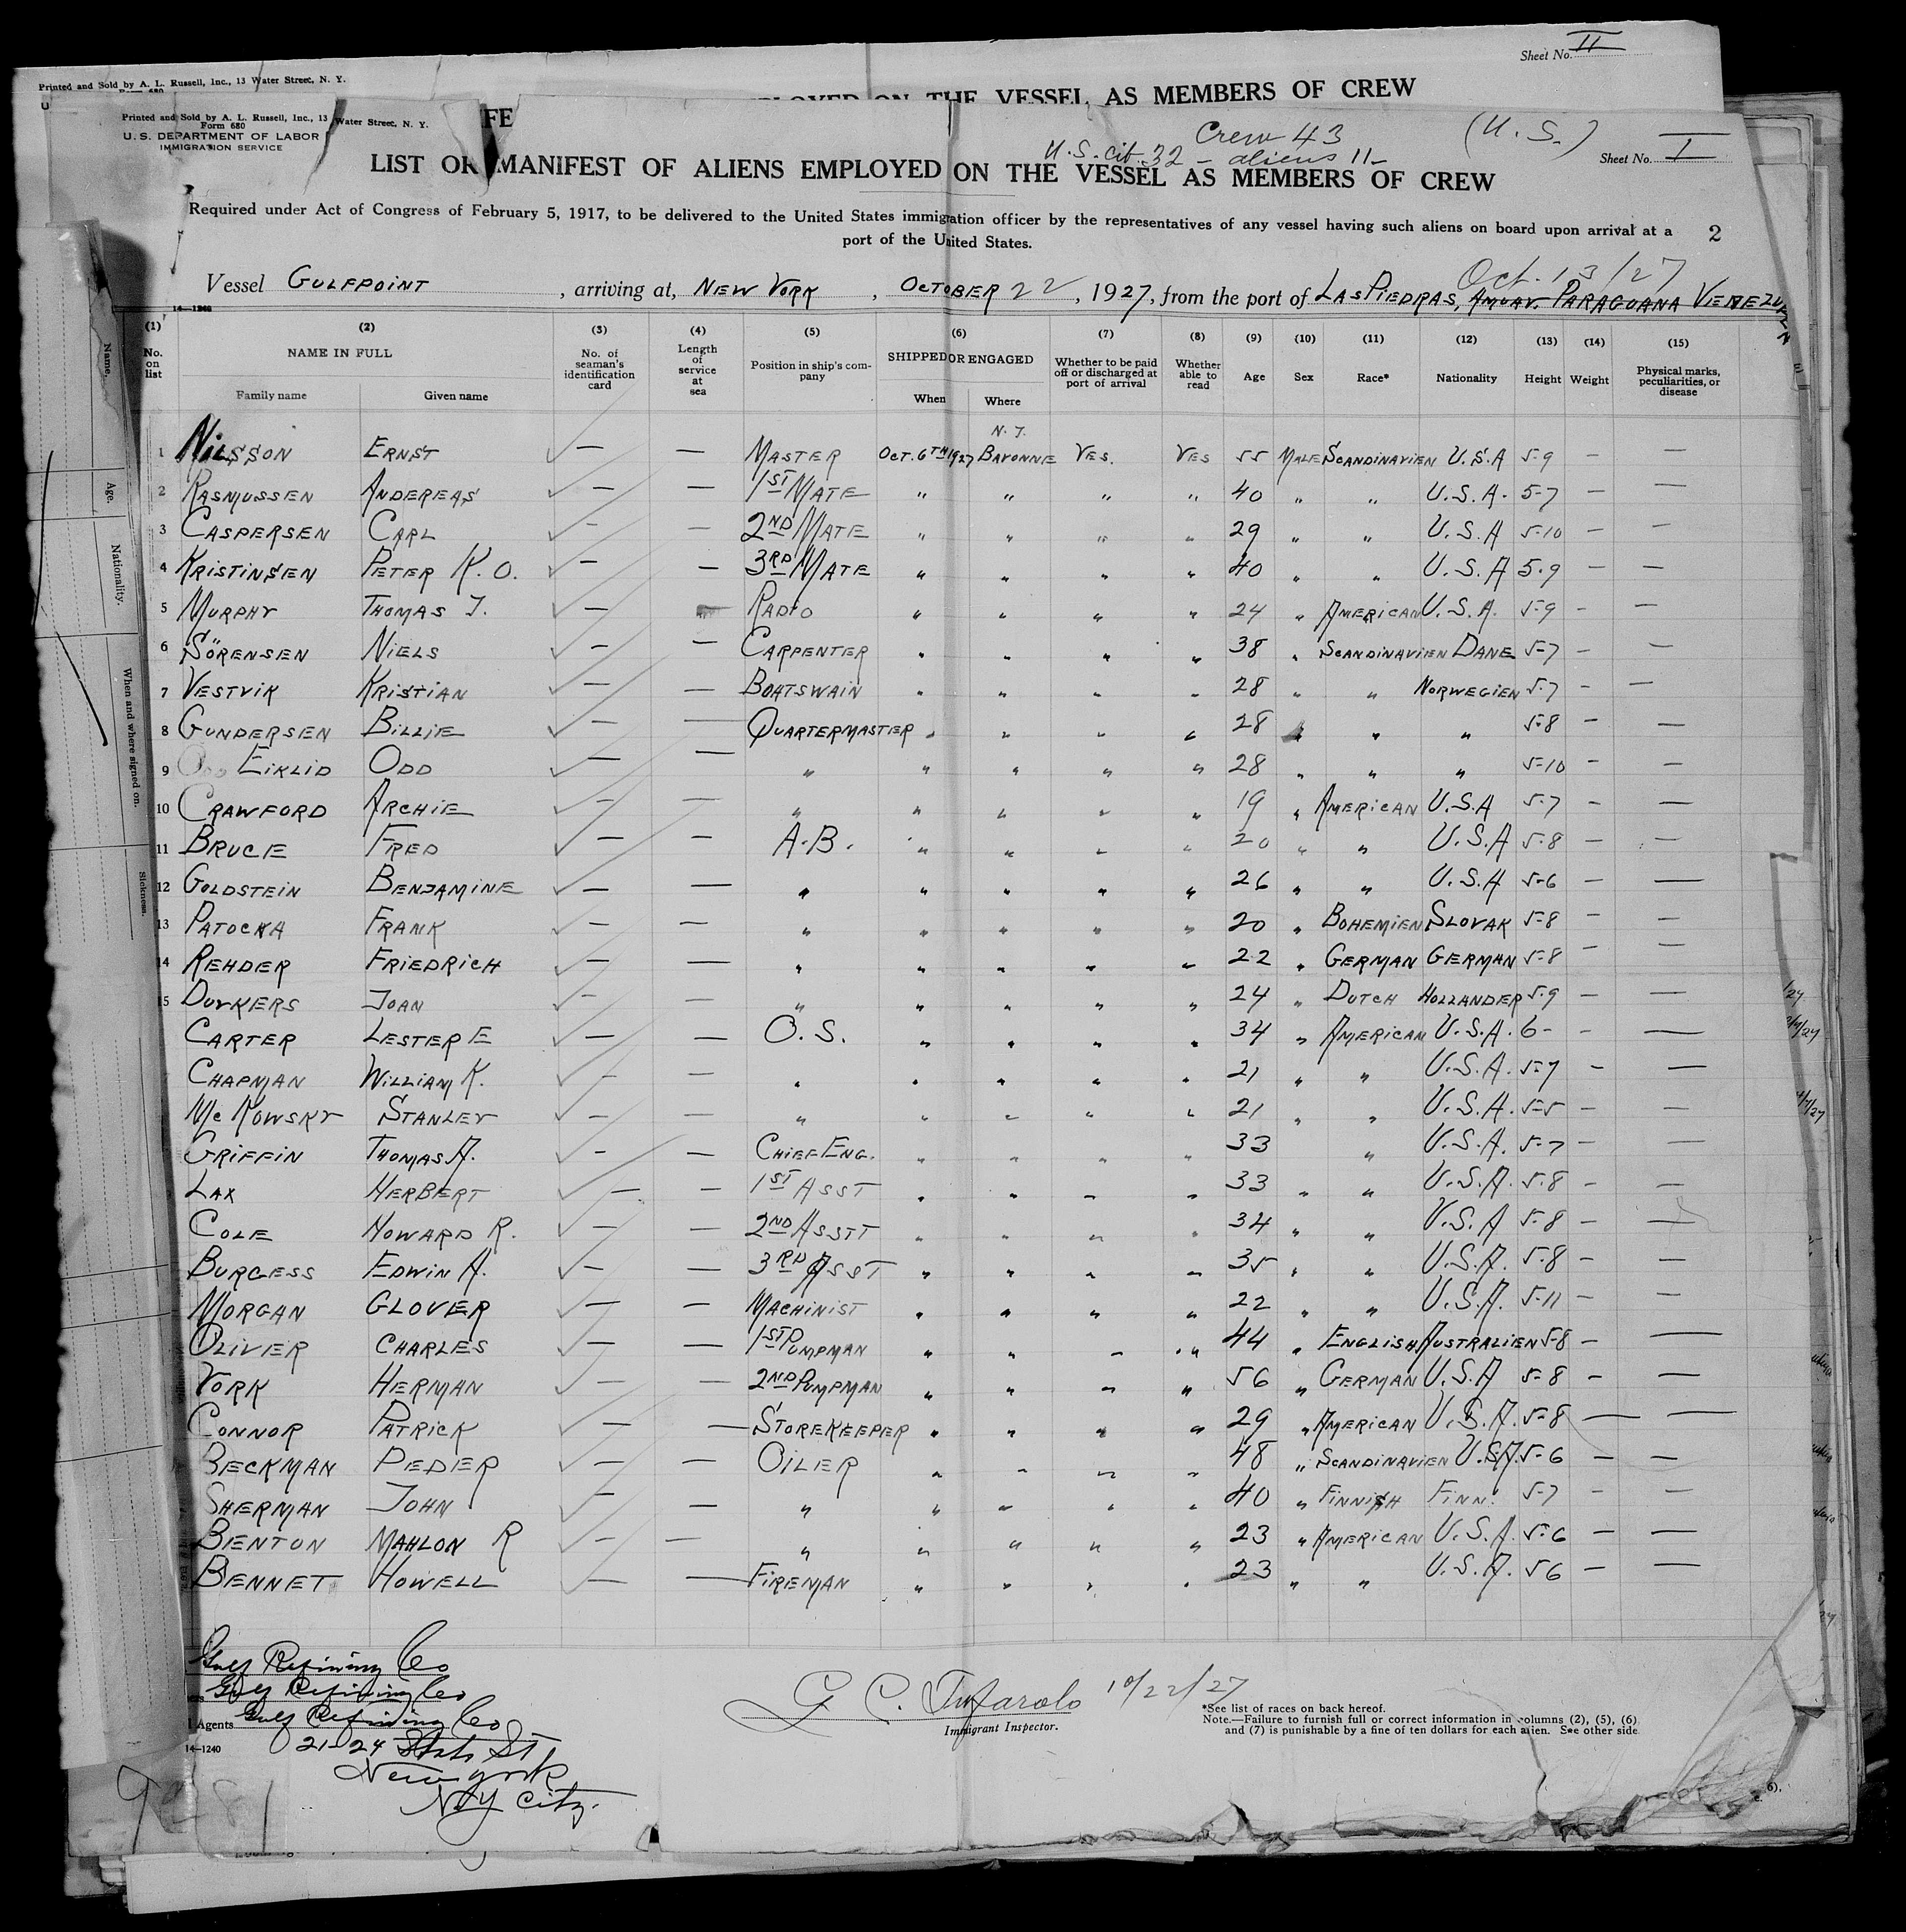 Sheet No. II
Printed and Sold by A. L. Russell, Inc., 13 Water Street, N. Y.
THE VESSEL AS MEMBERS OF CREW
Printed and Sold by A. L. Russell, Inc., 13 Water Street, N. Y.
Form 680
U. S. DEPARTMENT OF LABOR
IMMIGRATION SERVICE
Crew 43 (U. S.)
U. S. cit. 32 - aliens 11 -
Sheet No. I
LIST OR MANIFEST OF ALIENS EMPLOYED ON THE VESSEL AS MEMBERS OF CREW
Required under Act of Congress of February 5, 1917, to be delivered to the United States immigration officer by the representatives of any vessel having such aliens on board upon arrival at a
port of the United States.
2
Oct. 13/27
Vessel GULFPOINT, arriving at, NEW YORK, OCTOBER 22, 1927, from the port of LAS PIEDRAS, AMUAY. PARAGUANA VENEZUELA
14—1240
(1) (2) (3) (4) (5) (6) (7) (8) (9) (10) (11) (12) (13) (14) (15)
No. on list NAME IN FULL Family name Given name No. of seaman's identification card Length of service at sea Position in ship's company SHIPPED OR ENGAGED When Where Whether to be paid off or discharged at port of arrival Whether able to read Age Sex Race* Nationality Height Weight Physical marks, peculiarities, or disease
N. J.
1 NILSSON ERNST ✓ — — MASTER OCT. 6TH 1927 BAYONNE YES. YES 55 MALE SCANDINAVIEN U.S.A 5-9 — —
2 RASMUSSEN ANDEREAS ✓ — — 1ST MATE " " " " 40 " " U.S.A. 5-7 — —
3 CASPERSEN CARL ✓ — — 2ND MATE " " " " 29 " " U.S.A 5-10 — —
4 KRISTINSEN PETER K. O. ✓ — — 3RD MATE " " " " 40 " " U.S.A 5-9 — —
5 MURPHY THOMAS J. ✓ — — RADIO " " " " 24 " AMERICAN U.S.A. 5-9 — —
6 SÖRENSEN NIELS ✓ — — CARPENTER " " " " 38 " SCANDINAVIEN DANE 5-7 — —
7 VESTVIK KRISTIAN ✓ — — BOATSWAIN " " " " 28 " " NORWEGIEN 5-7 — —
8 GUNDERSEN BILLIE ✓ — — QUARTERMASTER " " " " 28 " " " 5-8 — —
9 EIKLID ODD ✓ — — " " " " " 28 " " " 5-10 — —
10 CRAWFORD ARCHIE ✓ — — " " " " " 19 " AMERICAN U.S.A 5-7 — —
11 BRUCE FRED ✓ — — A.B. " " " " 20 " " U.S.A 5-8 — —
12 GOLDSTEIN BENJAMINE ✓ — — " " " " " 26 " " U.S.A 5-6 — —
13 PATOCKA FRANK ✓ — — " " " " " 20 " BOHEMIEN SLOVAK 5-8 — —
14 REHDER FRIEDRICH ✓ — — " " " " " 22 " GERMAN GERMAN 5-8 — —
15 DUYKERS JOAN ✓ — — " " " " " 24 " DUTCH HOLLANDER 5-9 — —
CARTER LESTER E ✓ — — O.S. " " " " 34 " AMERICAN U.S.A. 6- - —
CHAPMAN WILLIAM K. ✓ — — " " " " " 21 " " U.S.A. 5-7 — —
McKOWSKY STANLEY ✓ — — " " " " " 21 " " U.S.A. 5-5 — —
GRIFFIN THOMAS A. ✓ — — CHIEF ENG. " " " " 33 " U.S.A. 5-7 — —
LAX HERBERT ✓ — — 1ST ASST " " " " 33 " " U.S.A. 5-8 — —
COLE HOWARD R. ✓ — — 2ND ASSTT " " " " 34 " " U.S.A 5-8 — —
BURGESS EDWIN A. ✓ — — 3RD ASST " " " " 35 " " U.S.A. 5-8 — —
MORGAN GLOVER ✓ — — MACHINIST " " " " 22 " " U.S.A. 5-11 — —
OLIVER CHARLES ✓ — — 1ST PUMPMAN " " " " 44 " ENGLISH AUSTRALIEN 5-8 — —
YORK HERMAN ✓ — — 2ND PUMPMAN " " " " 56 " GERMAN U.S.A 5-8 — —
CONNOR PATRICK ✓ — — STOREKEEPER " " " " 29 " AMERICAN U.S.A. 5-8 — —
BECKMAN PEDER ✓ — — OILER " " " " 48 " SCANDINAVIEN U.S.A. 5-6 — —
SHERMAN JOHN ✓ — — " " " " " 40 " FINNISH FINN. 5-7 — —
BENTON MAHLON R ✓ — — " " " " " 23 " AMERICAN U.S.A. 5-6 — —
BENNET HOWELL ✓ — — FIREMAN " " " " 23 " " U.S.A. 5 6 — —
Gulf Refining Co
Gulf Refining Co
Agents Gulf Refining Co
21-24 State St
New York
N.Y City.
14—1240
10/22/27
Immigrant Inspector.
*See list of races on back hereof.
Note.—Failure to furnish full or correct information in columns (2), (5), (6)
and (7) is punishable by a fine of ten dollars for each alien. See other side
Name.
Age.
Nationality.
When and where signed on.
Sickness.